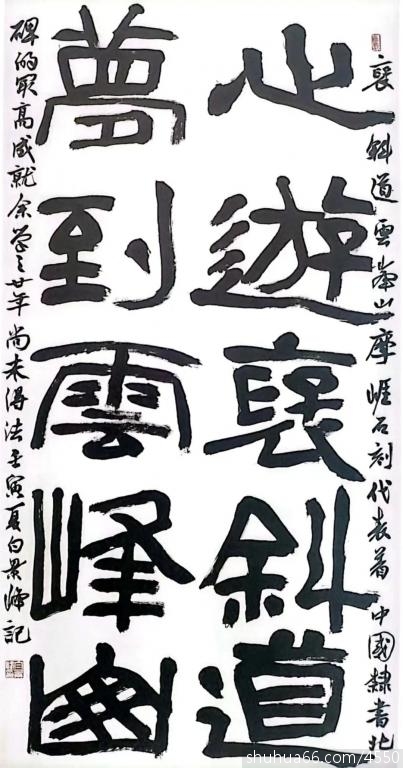 褒斜道雲峯山摩崖石刻代表着中國隸書北
心遊褒斜道
夢到雲峰幽
碑的最高成就余學之廿年尚未得法壬寅夏白景峰記
shuhua66.com/4850